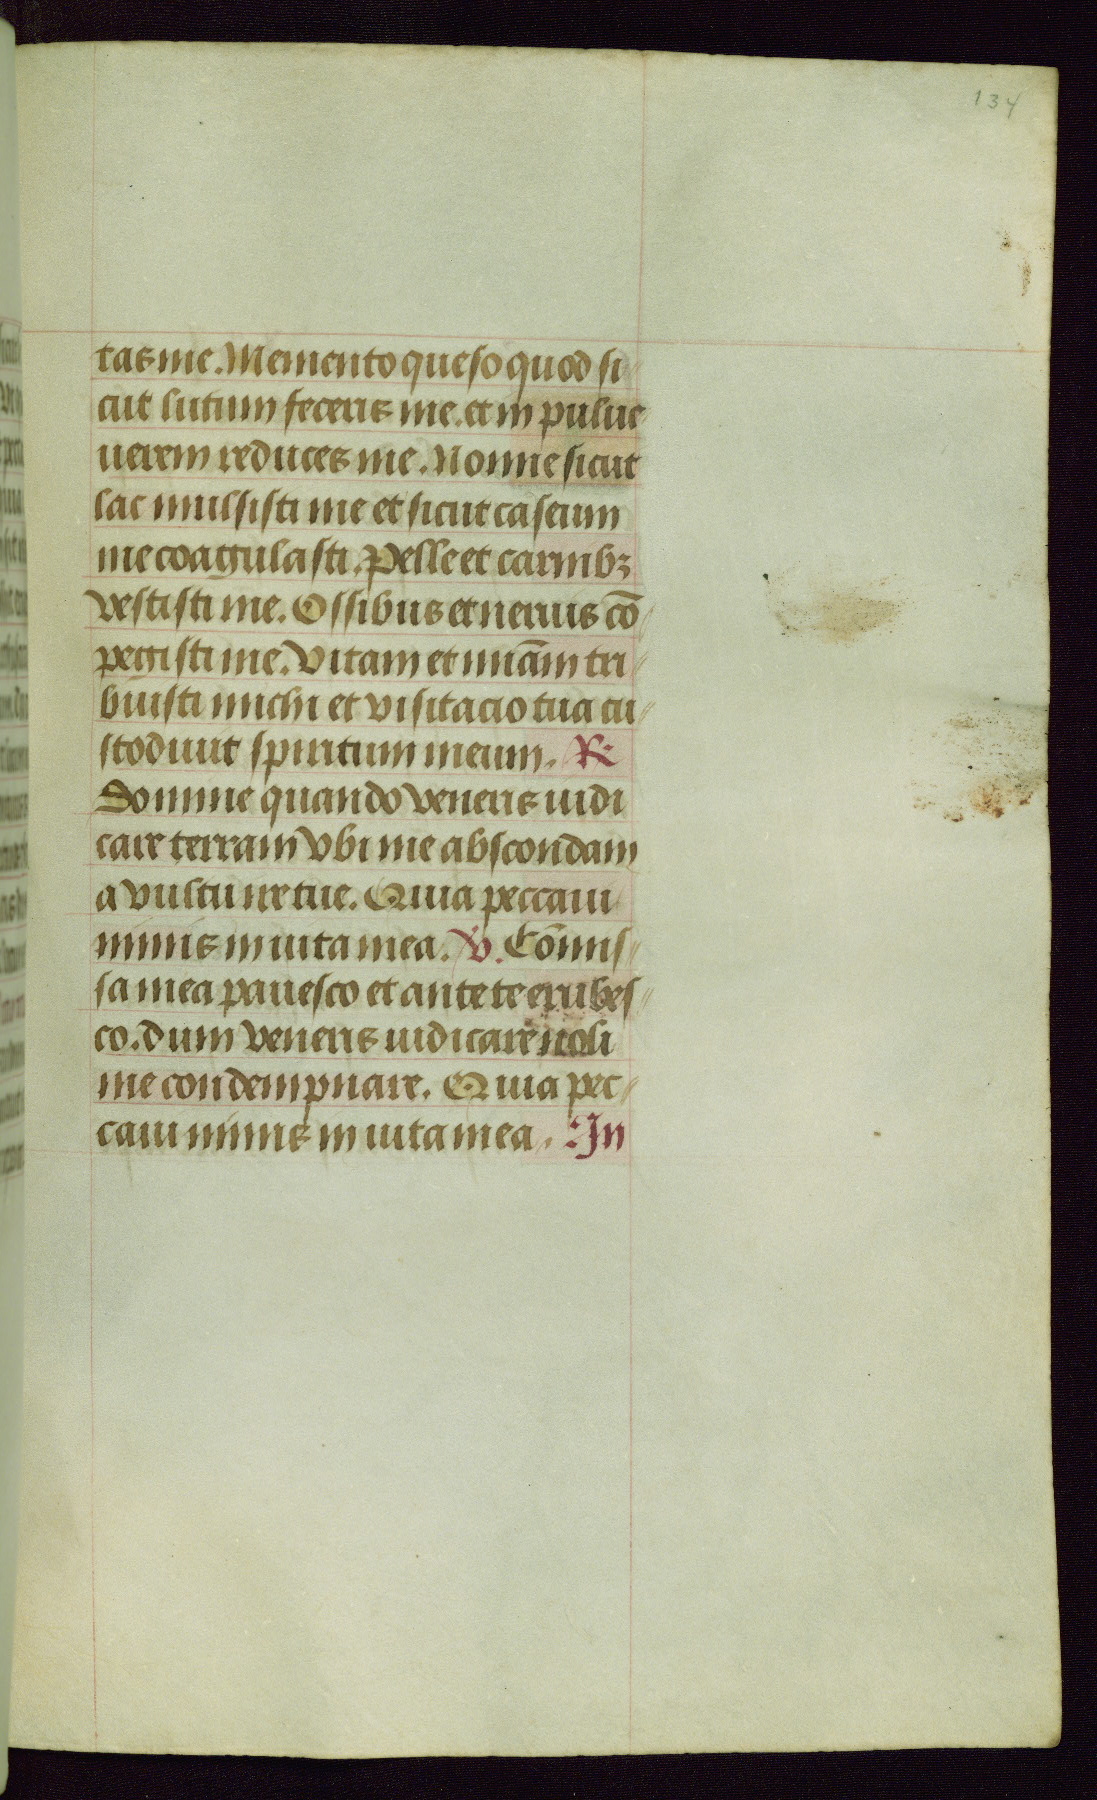 134
tas me. Memento queso quod si
cut lutum feceris me. et in pulue
uerem reduces me. Nonne sicut
lac mulsisti me et sicut caseum
me coagulasti. Pelle et carnibꝫ
vestisti me. Ossibus et neruis cō
pegisti me. Vitam et miām tri
buisti michi et visitacio tua cu
stodiuit spiritum meum. ℟
Domine quando veneris iudi
care terram Vbi me abscondam
a vultu ire tue. Quia peccaui
nimis in uita mea. ℣. Cōmis
sa mea pauesco et ante te erubes
co. dum veneris iudicare noli
me condempnare. Quia pec
caui nimis in uita mea. In